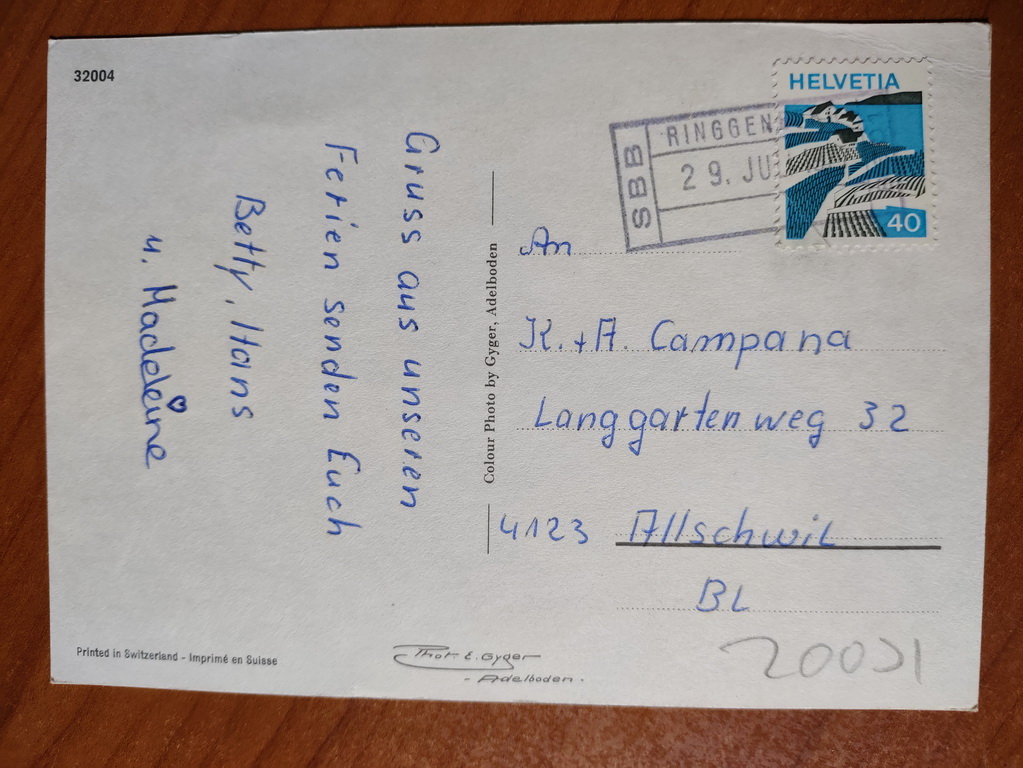 32004
Gruss aus unseren
Ferien senden Euch
Betty, Hans
u. Madeleine
Colour Photo by Gyger, Adelboden
HELVETIA
40
SBB
RINGGEN
29. JU
An
K. + A. Campana
Langgartenweg 32
4123 Allschwil
BL
Printed in Switzerland - Imprimé en Suisse
Phot. E. Gyger
- Adelboden -